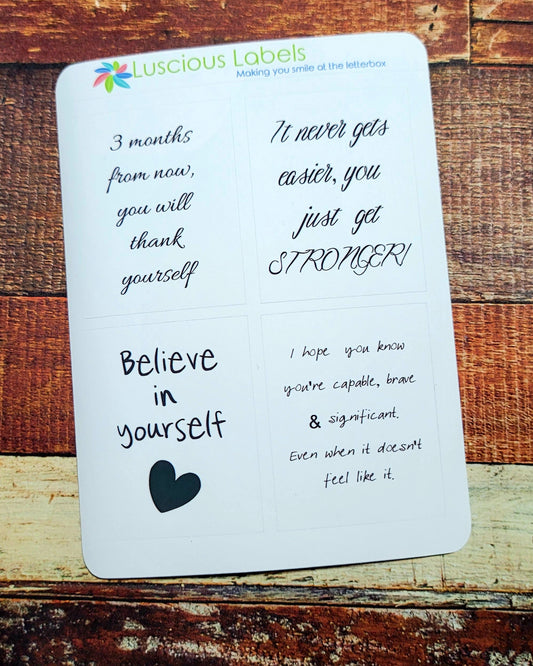 Luscious Labels
Making you smile at the letterbox
3 months
from now,
you will
thank
yourself
It never gets
easier, you
just get
STRONGER!
Believe
in
yourself
I hope you know
you're capable, brave
& significant.
Even when it doesn't
feel like it.